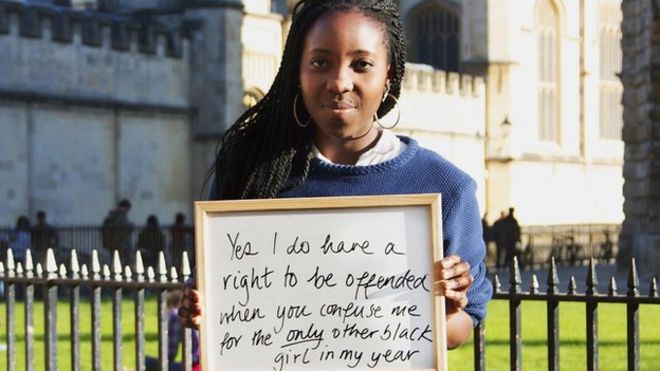 Yes I do have a
right to be offended
when you confuse me
for the only other black
girl in my year